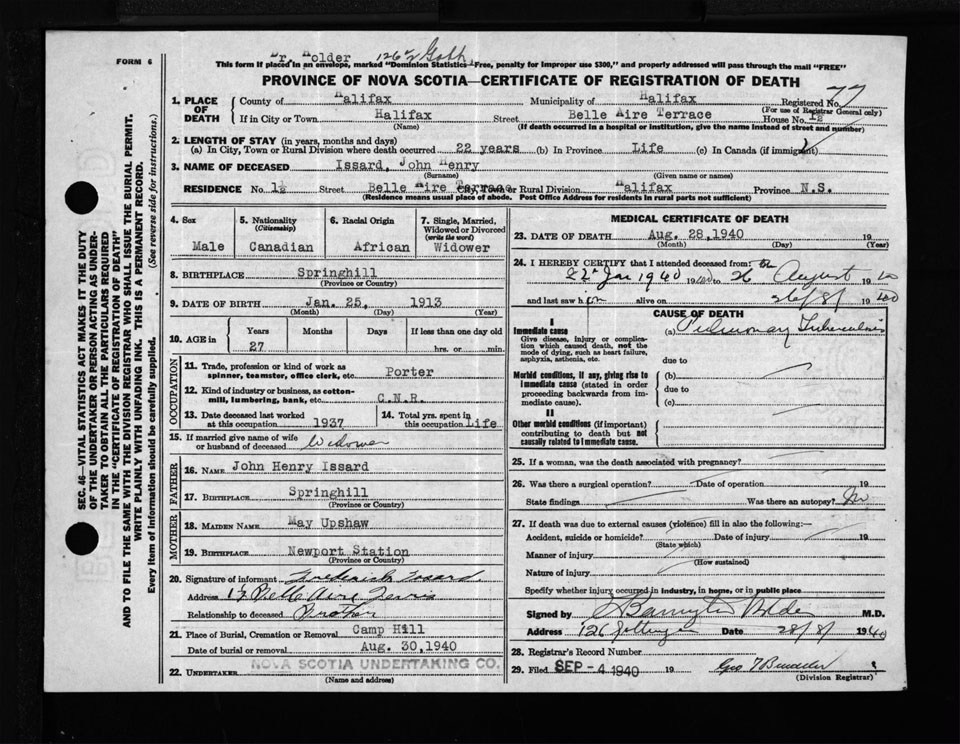 FORM 6
Dr. Holder 126½ Gott
This form if placed in an envelope, marked "Dominion Statistics—Free, penalty for improper use $300," and properly addressed will pass through the mail "FREE"
PROVINCE OF NOVA SCOTIA—CERTIFICATE OF REGISTRATION OF DEATH
1. PLACE OF DEATH
County of Halifax Municipality of Halifax Registered No. 77
(For use of Registrar General only)
If in City or Town Halifax Street Belle Aire Terrace House No. 1½
(Name) (If death occurred in a hospital or institution, give the name instead of street and number)
2. LENGTH OF STAY (in years, months and days)
(a) In City, Town or Rural Division where death occurred 22 years (b) In Province Life (c) In Canada (if immigrant)
3. NAME OF DECEASED Issard, John Henry
(Surname) (Given name or names)
RESIDENCE No. 1½ Street Belle Aire Terrace City, Town or Rural Division Halifax Province N.S.
(Residence means usual place of abode. Post Office Address for residents in rural parts not sufficient)
4. Sex
Male
5. Nationality (Citizenship)
Canadian
6. Racial Origin
African
7. Single, Married, Widowed or Divorced (write the word)
Widower
8. BIRTHPLACE Springhill
(Province or Country)
9. DATE OF BIRTH Jan. 25, 1913
(Month) (Day) (Year)
10. AGE in
Years Months Days If less than one day old
27 hrs. or min.
OCCUPATION
11. Trade, profession or kind of work as spinner, teamster, office clerk, etc. Porter
12. Kind of industry or business, as cotton-mill, lumbering, bank, etc. C.N.R.
13. Date deceased last worked at this occupation 1937
14. Total yrs. spent in this occupation Life
15. If married give name of wife or husband of deceased Widower
FATHER
16. NAME John Henry Issard
17. BIRTHPLACE Springhill
(Province or Country)
MOTHER
18. MAIDEN NAME May Upshaw
19. BIRTHPLACE Newport Station
(Province or Country)
20. Signature of informant Frederick Issard
Address 1½ Belle Aire
Relationship to deceased Brother
21. Place of Burial, Cremation or Removal Camp Hill
Date of burial or removal Aug. 30, 1940
22. UNDERTAKER NOVA SCOTIA UNDERTAKING CO.
(Name and address)
MEDICAL CERTIFICATE OF DEATH
23. DATE OF DEATH Aug. 28, 1940 19
(Month) (Day) (Year)
24. I HEREBY CERTIFY that I attended deceased from: the
22nd Jan 1940 to 26 August 19
and last saw him alive on 26/8/ 1940
CAUSE OF DEATH
I
Immediate cause
Give disease, injury or complication which caused death, not the mode of dying, such as heart failure, asphyxia, asthenia, etc.
(a) Pulmonary Tuberculosis
due to
Morbid conditions, if any, giving rise to immediate cause (stated in order proceeding backwards from immediate cause).
(b)
due to
(c)
II
Other morbid conditions (if important) contributing to death but not causally related to immediate cause.
25. If a woman, was the death associated with pregnancy?
26. Was there a surgical operation? Date of operation 19
State findings Was there an autopsy? No
27. If death was due to external causes (violence) fill in also the following:—
Accident, suicide or homicide? Date of injury 19
(State which)
Manner of injury
(How sustained)
Nature of injury
Specify whether injury occurred in industry, in home, or in public place
Signed by M.D.
Address 126 Gottingen Date 28/8/ 1940
28. Registrar's Record Number
29. Filed SEP - 4 1940 19
(Division Registrar)
SEC. 46—VITAL STATISTICS ACT MAKES IT THE DUTY
OF THE UNDERTAKER OR PERSON ACTING AS UNDER-
TAKER TO OBTAIN ALL THE PARTICULARS REQUIRED
IN THE "CERTIFICATE OF REGISTRATION OF DEATH"
AND TO FILE THE SAME WITH THE DIVISION REGISTRAR WHO SHALL ISSUE THE BURIAL PERMIT.
WRITE PLAINLY WITH UNFADING INK. THIS IS A PERMANENT RECORD.
Every item of information should be carefully supplied. (See reverse side for instructions.)